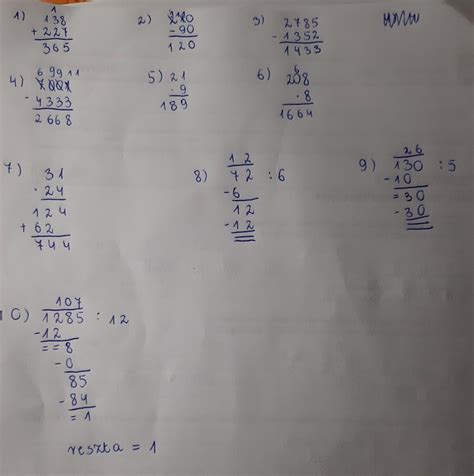 1) 1
138
+ 227
365
2) 210
- 90
120
3) 2785
- 1352
1433
4) 6 9 9 11
7001
- 4333
2668
5) 21
· 9
189
6) 6
208
· 8
1664
7) 31
· 24
124
+ 62
744
8) 12
72 : 6
- 6
12
- 12
9) 26
130 : 5
- 10
= 30
- 30
10) 107
1285 : 12
- 12
= = 8
- 0
85
- 84
= 1
reszta = 1